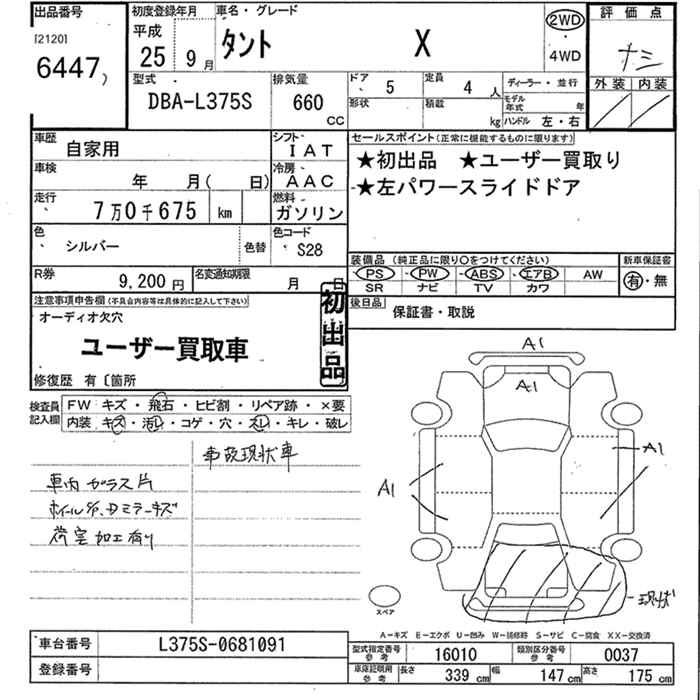 出品番号
[2120]
6447)
初度登録年月
平成
25 9月
車名・グレード
タント X
2WD
4WD
評価点
ナシ
外装 内装
型式
DBA-L375S
排気量
660
CC
ドア 5
形状
定員 4 人
積載 kg
ディーラー・並行
モデル年式 年
ハンドル 左・右
車歴
自家用
シフト
IAT
車検
年 月( 日)
冷房
AAC
走行
7万0千675 km
燃料
ガソリン
色
シルバー
色替
色コード
S28
R券
9,200円
名変通知期限
月 日
セールスポイント(正常に機能するものに限ります)
★初出品 ★ユーザー買取り
★左パワースライドドア
装備品(純正品に限り○をつけてください)
PS PW ABS エアB AW
SR ナビ TV カワ
新車保証書
有・無
後日品
保証書・取説
注意事項申告欄(不具合内容等は具体的に記入して下さい)
オーディオ欠穴
ユーザー買取車
初出品
修復歴 有〔箇所
検査員記入欄
FW キズ・飛石・ヒビ割・リペア跡・×要
内装 キズ・汚レ・コゲ・穴・スレ・キレ・破レ
事故現状車
車内ガラス片
ホイルS/P、Dミラーキズ
荷室加工有り
A1
A1
A1
A1
現状
スペア
A-キズ E-エクボ U-凹み W-補修跡 S-サビ C-腐食 XX-交換済
車台番号
L375S-0681091
登録番号
型式指定番号 参考 16010
類別区分番号 参考 0037
車庫証明用 参考
長さ 339 cm 幅 147 cm 高さ 175 cm